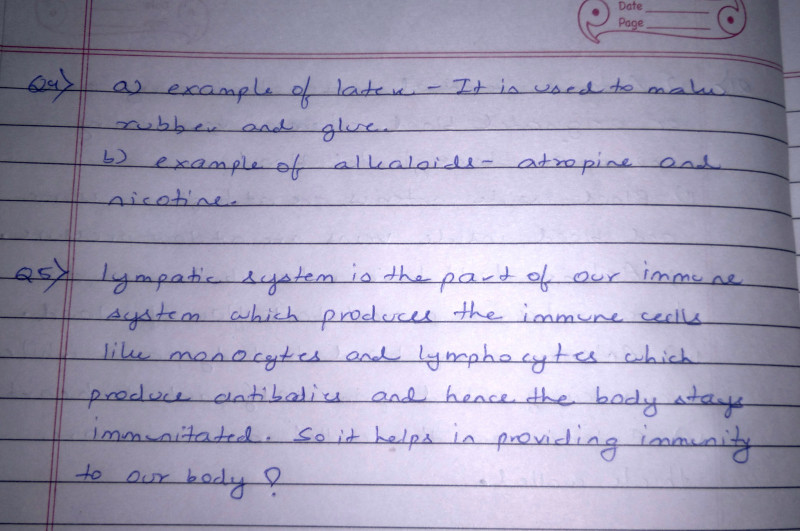 Date
Page
Q4) a) example of latex - It is used to make
rubber and glue.
b) example of alkaloids - atropine and
nicotine.
Q5) lympatic system is the part of our immune
system which produces the immune cells
like monocytes and lymphocytes which
produce antibodies and hence the body stays
immunitated. So it helps in providing immunity
to our body